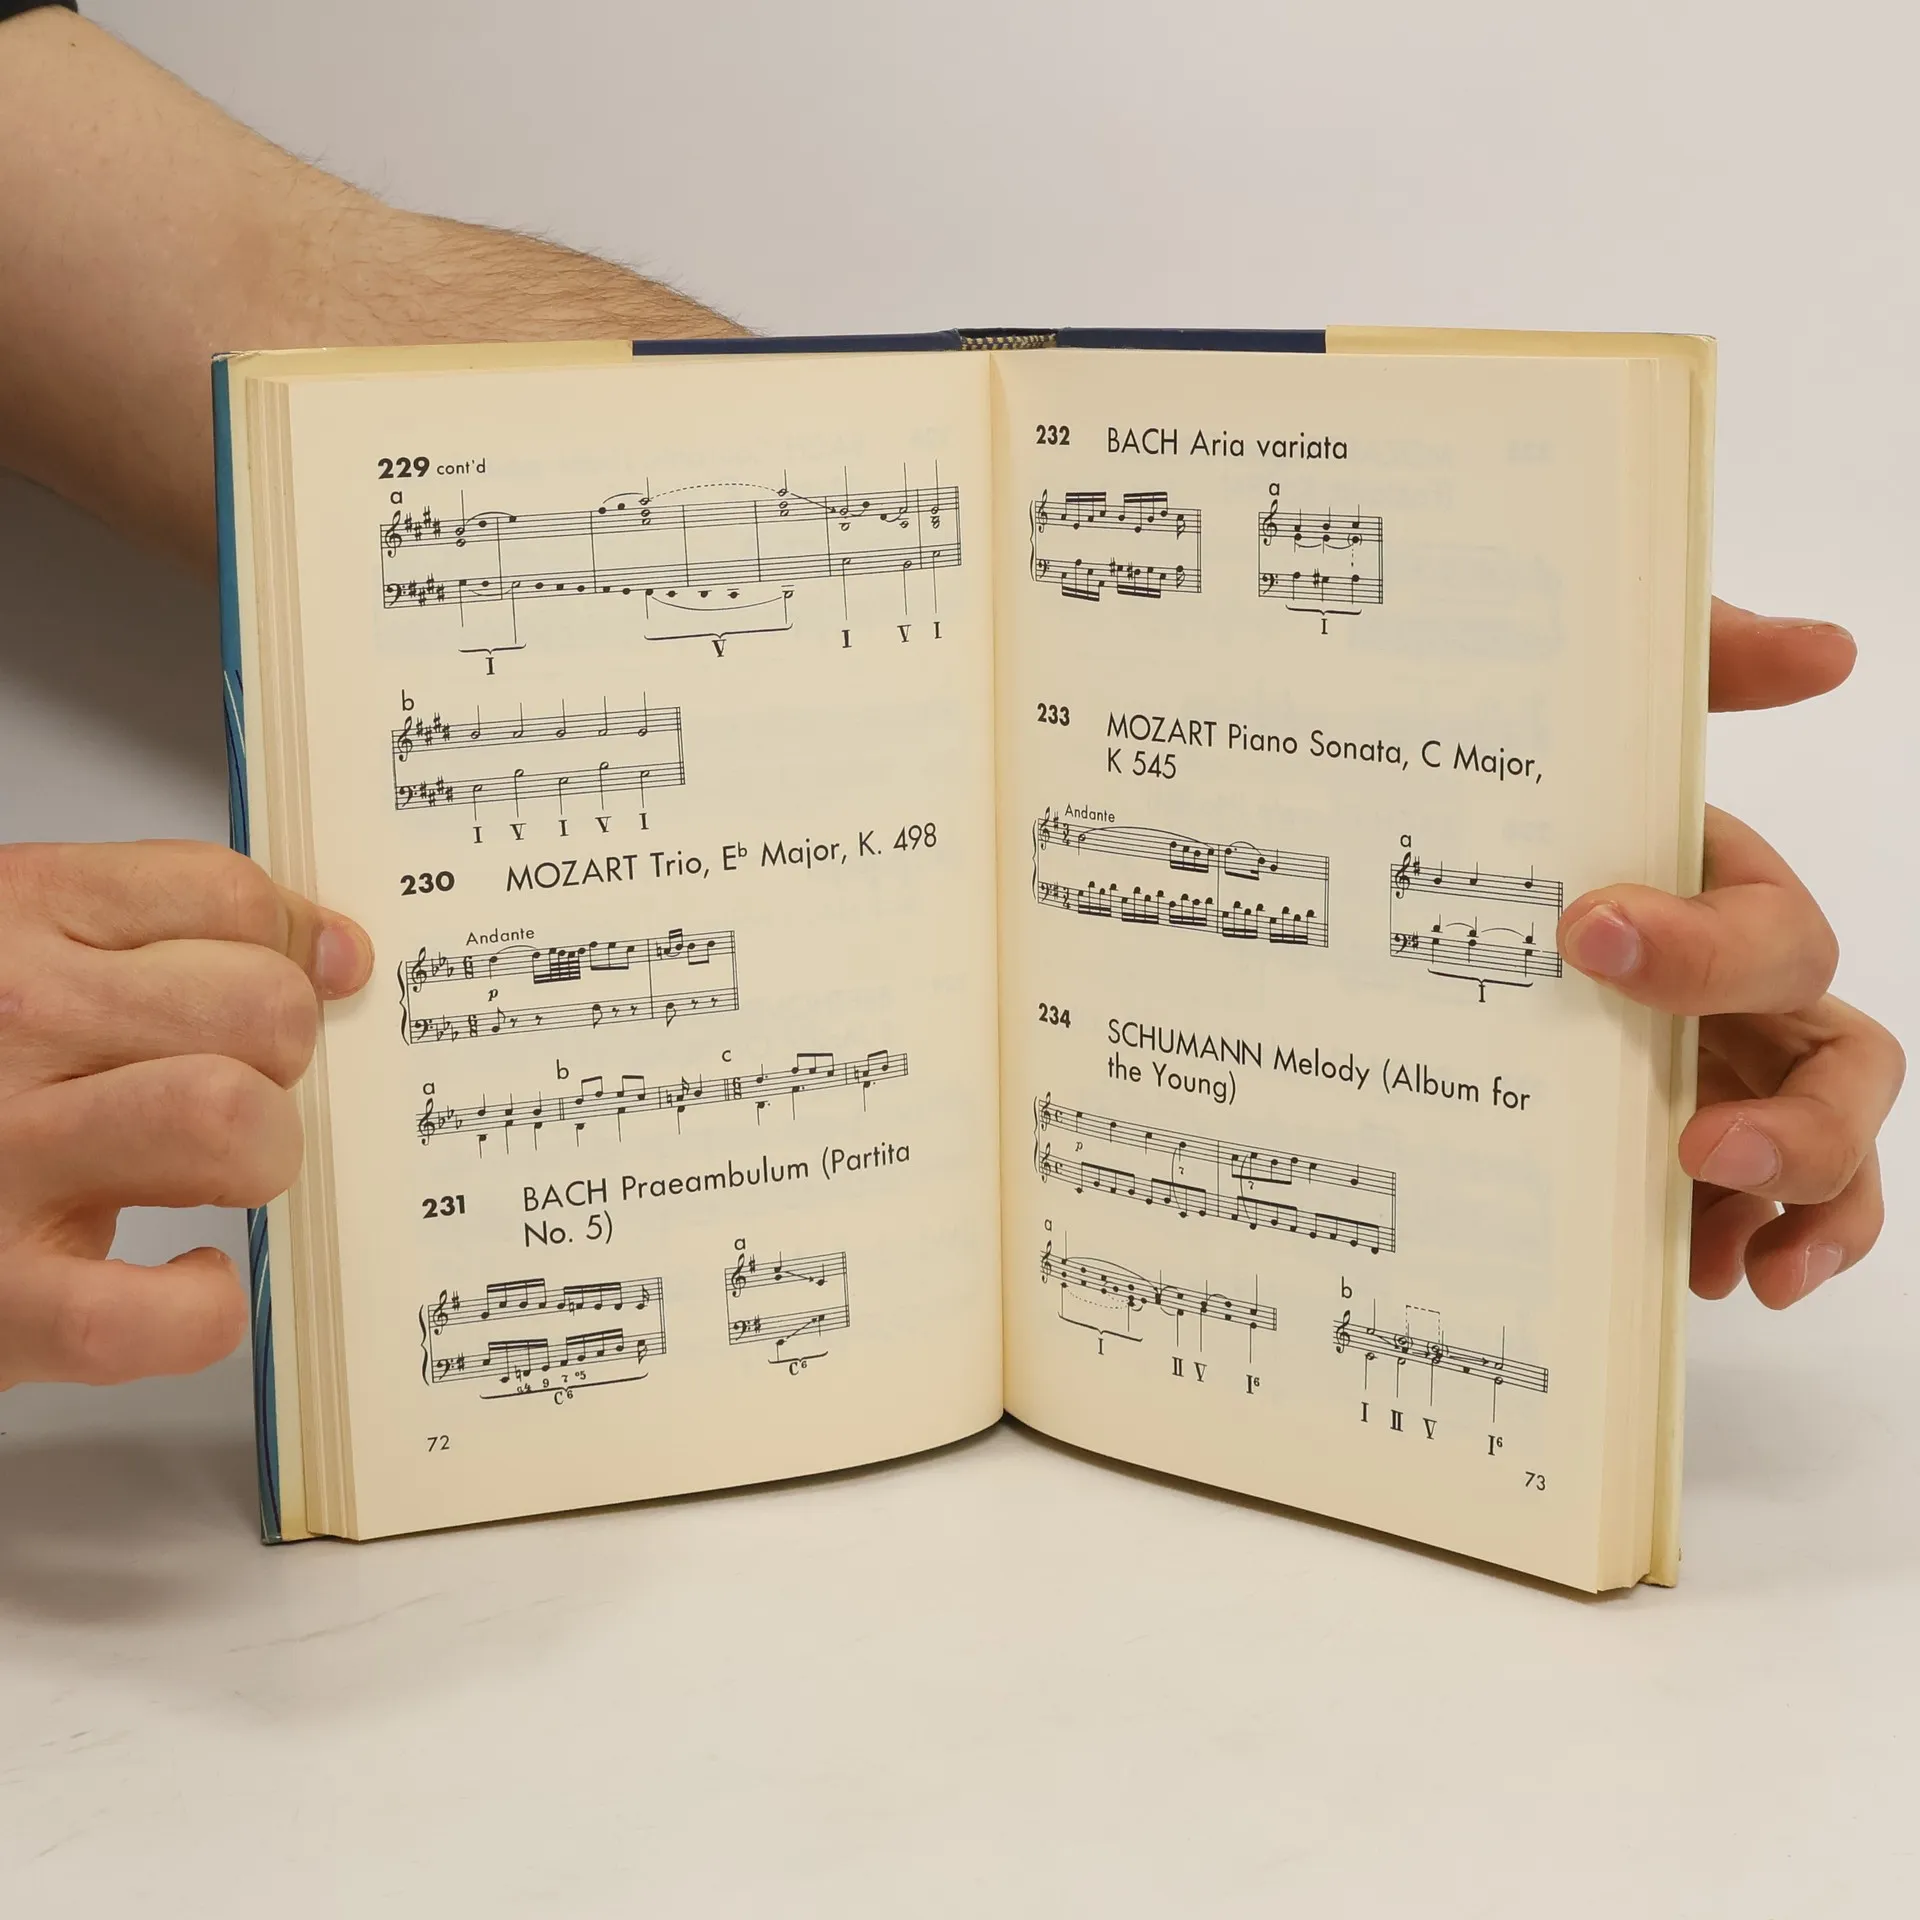 229 cont'd
a
I V I V I
b
I V I V I
230 MOZART Trio, E♭ Major, K. 498
Andante
p
a b c
231 BACH Praeambulum (Partita
No. 5)
a
9 7 °5
C⁶
C⁶
72
232 BACH Aria variata
a
I
233 MOZART Piano Sonata, C Major,
K 545
Andante
a
I
234 SCHUMANN Melody (Album for
the Young)
p
7 7
a
I II V I⁶
b
I II V I⁶
73